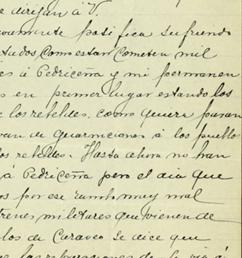 se dirijan á V
vamente pasifica sufriendo
tudos Como estan cometen mil
es á Pedriceña y mi permanen
s en primer lugar estando los
e los rebeldes, como quiera pasan
van de Guarniciones á los pueblos
los rebeldes. Hasta ahora no han
a Pedriceña pero el dia que
os por ese rumbo muy mal
trenes militares que vienen de
los de Caraveo Se dice que
e las reparaciones de la via á